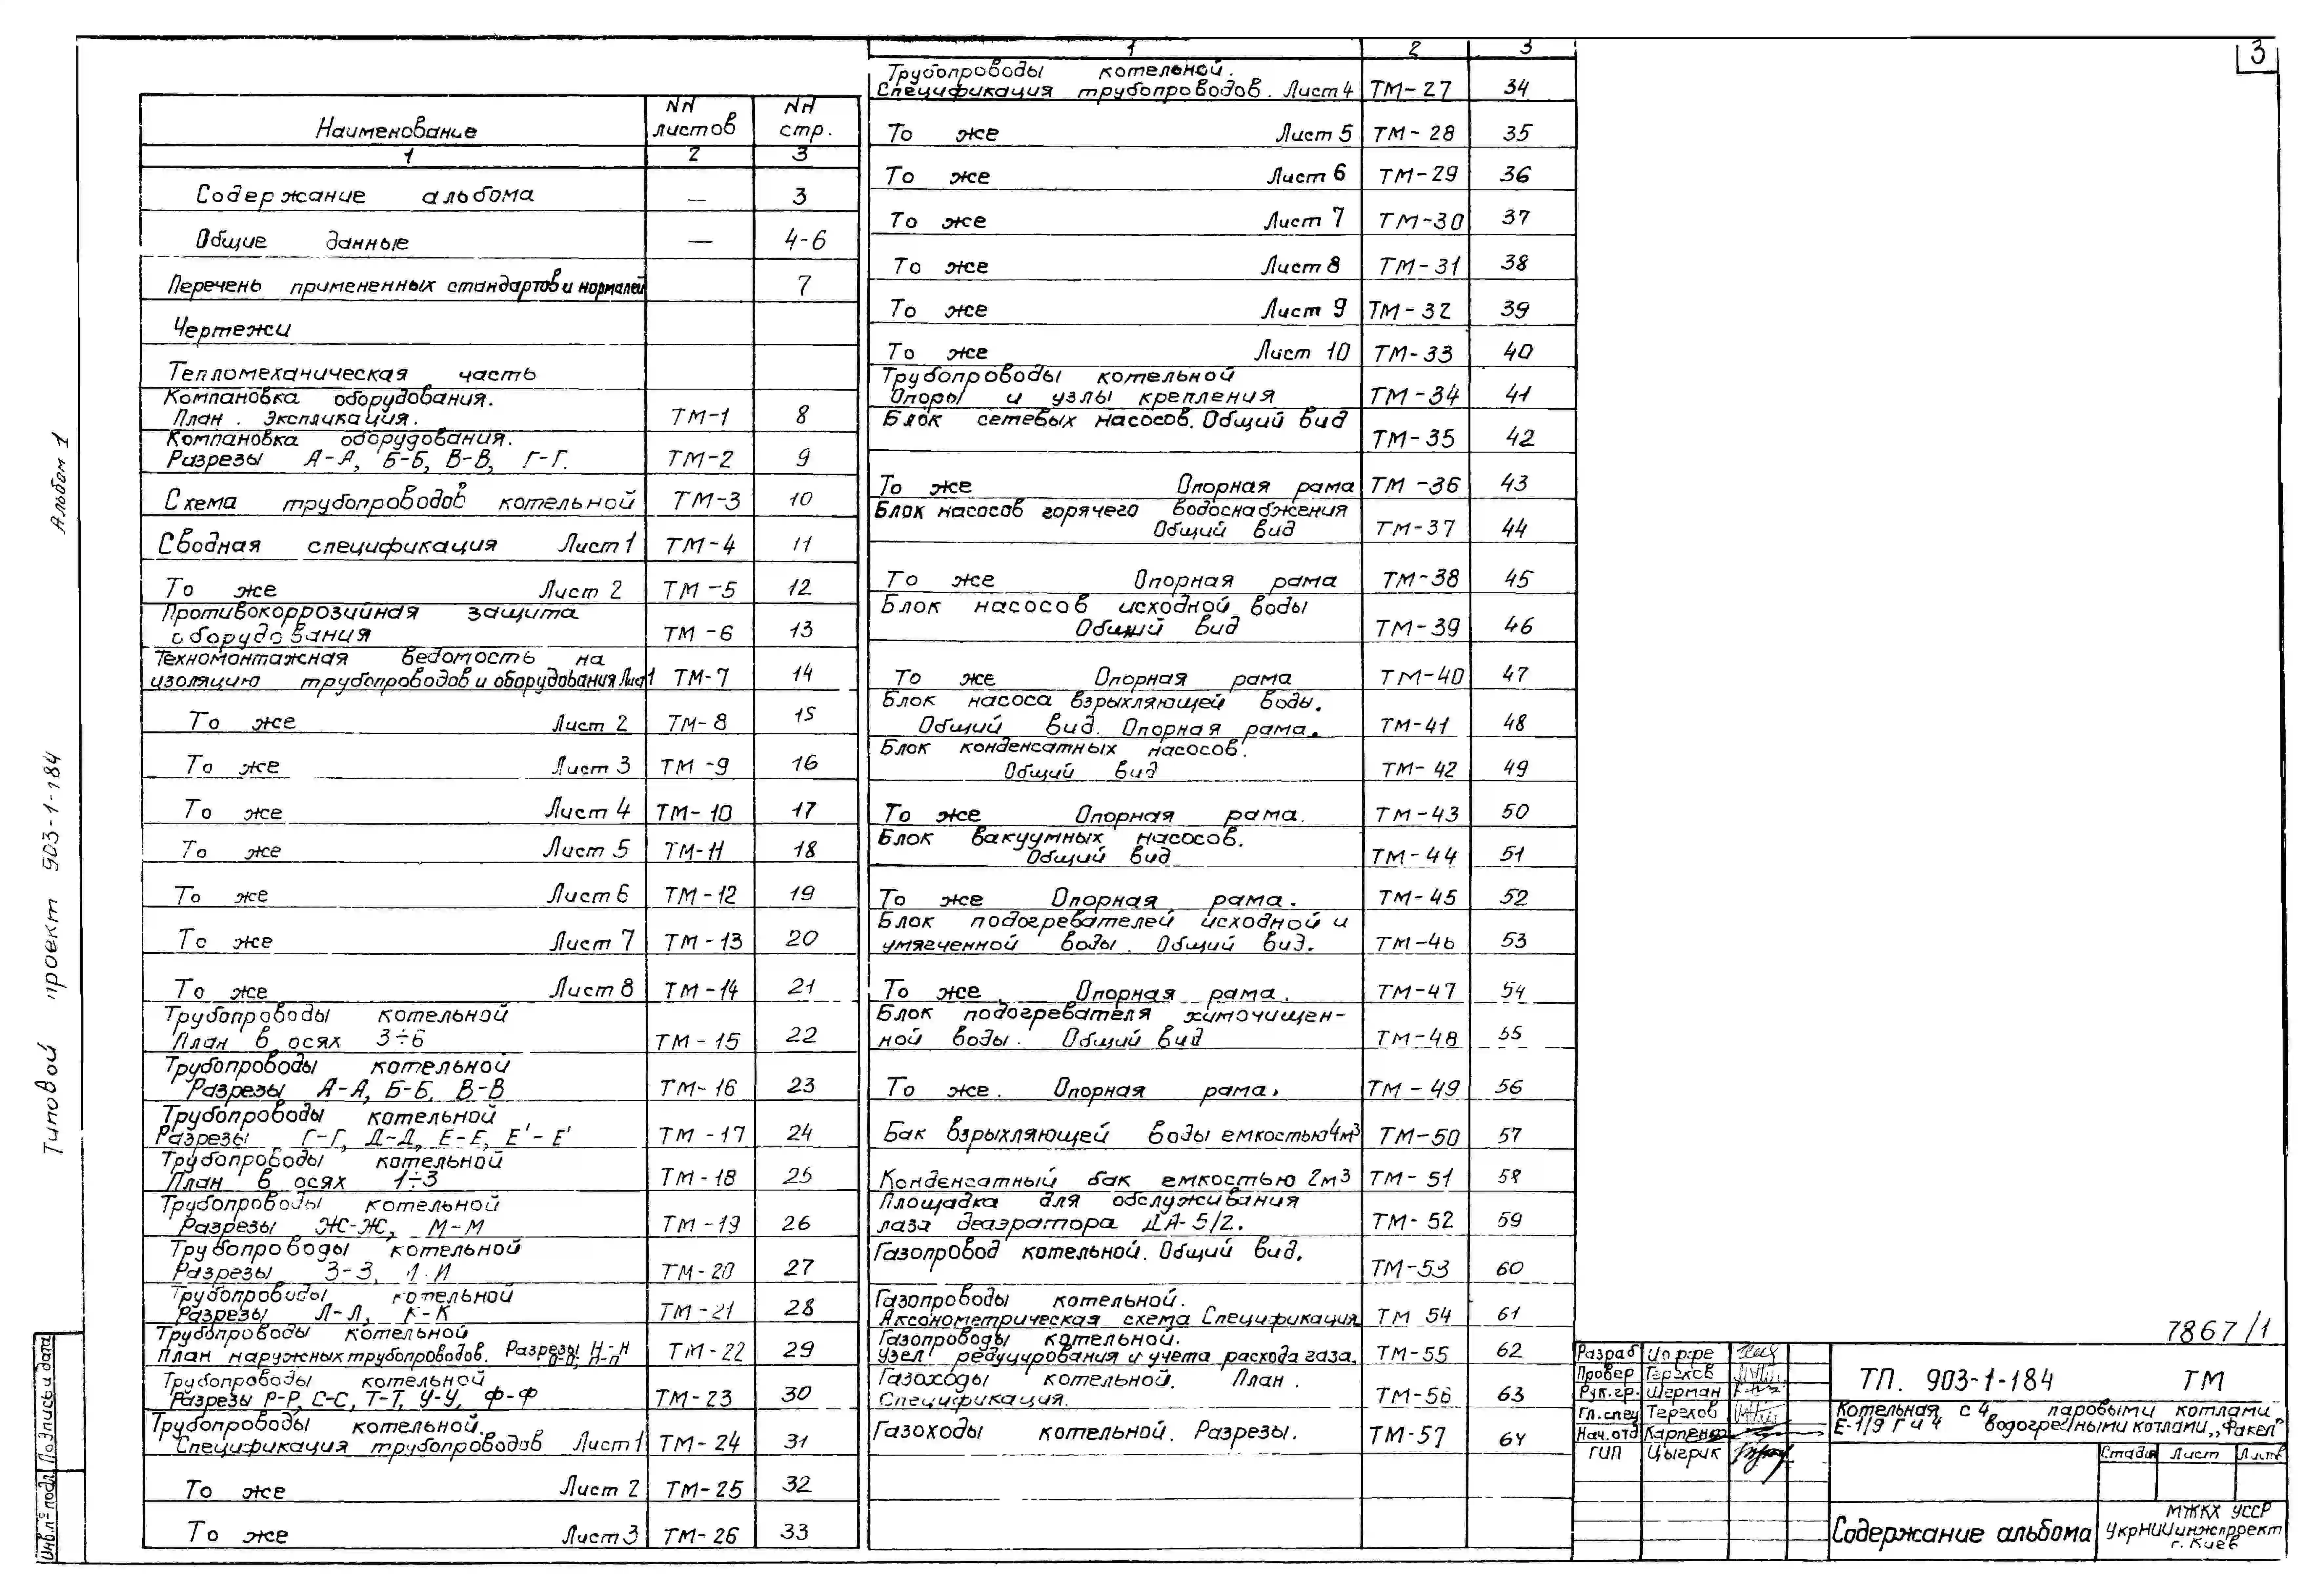 3
Альбом 1
Типовой проект 903-1-184
Наименование NN листов NN стр.
1 2 3
Содержание альбома — 3
Общие данные — 4-6
Перечень примененных стандартов и нормалей 7
Чертежи
Тепломеханическая часть
Компановка оборудования.
План. Экспликация. ТМ-1 8
Компановка оборудования.
Разрезы А-А, Б-Б, В-В, Г-Г. ТМ-2 9
Схема трубопроводов котельной ТМ-3 10
Сводная спецификация Лист 1 ТМ-4 11
То же Лист 2 ТМ-5 12
Противокоррозийная защита
оборудования ТМ-6 13
Техномонтажная ведомость на
изоляцию трубопроводов и оборудования Лист 1 ТМ-7 14
То же Лист 2 ТМ-8 15
То же Лист 3 ТМ-9 16
То же Лист 4 ТМ-10 17
То же Лист 5 ТМ-11 18
То же Лист 6 ТМ-12 19
То же Лист 7 ТМ-13 20
То же Лист 8 ТМ-14 21
Трубопроводы котельной
План в осях 3÷6 ТМ-15 22
Трубопроводы котельной
Разрезы А-А, Б-Б, В-В ТМ-16 23
Трубопроводы котельной
Разрезы Г-Г, Д-Д, Е-Е, Е'-Е' ТМ-17 24
Трубопроводы котельной
План в осях 1÷3 ТМ-18 25
Трубопроводы котельной
Разрезы Ж-Ж, М-М ТМ-19 26
Трубопроводы котельной
Разрезы З-З, ТМ-20 27
Трубопроводы котельной
Разрезы Л-Л, К-К ТМ-21 28
Трубопроводы котельной
План наружных трубопроводов. Разрезы Н-Н П-П ТМ-22 29
Трубопроводы котельной
Разрезы Р-Р, С-С, Т-Т, У-У, Ф-Ф ТМ-23 30
Трубопроводы котельной.
Спецификация трубопроводов Лист 1 ТМ-24 31
То же Лист 2 ТМ-25 32
То же Лист 3 ТМ-26 33
1 2 3
Трубопроводы котельной.
Спецификация трубопроводов. Лист 4 ТМ-27 34
То же Лист 5 ТМ-28 35
То же Лист 6 ТМ-29 36
То же Лист 7 ТМ-30 37
То же Лист 8 ТМ-31 38
То же Лист 9 ТМ-32 39
То же Лист 10 ТМ-33 40
Трубопроводы котельной
Опоры и узлы крепления ТМ-34 41
Блок сетевых насосов. Общий вид ТМ-35 42
То же Опорная рама ТМ-36 43
Блок насосов горячего водоснабжения
Общий вид ТМ-37 44
То же Опорная рама ТМ-38 45
Блок насосов исходной воды
Общий вид ТМ-39 46
То же Опорная рама ТМ-40 47
Блок насоса взрыхляющей воды.
Общий вид. Опорная рама. ТМ-41 48
Блок конденсатных насосов.
Общий вид ТМ-42 49
То же Опорная рама. ТМ-43 50
Блок вакуумных насосов.
Общий вид ТМ-44 51
То же Опорная рама. ТМ-45 52
Блок подогревателей исходной и
умягченной воды. Общий вид. ТМ-46 53
То же Опорная рама. ТМ-47 54
Блок подогревателя химочищен-
ной воды. Общий вид ТМ-48 55
То же. Опорная рама. ТМ-49 56
Бак взрыхляющей воды емкостью 4м³ ТМ-50 57
Конденсатный бак емкостью 2м³ ТМ-51 58
Площадка для обслуживания
лаза деаэратора ДА-5/2. ТМ-52 59
Газопровод котельной. Общий вид. ТМ-53 60
Газопроводы котельной.
Аксонометрическая схема Спецификация ТМ 54 61
Газопроводы котельной.
Узел редуцирования и учета расхода газа. ТМ-55 62
Газоходы котельной. План.
Спецификация. ТМ-56 63
Газоходы котельной. Разрезы. ТМ-57 64
7867/1
Разраб
Провер Терехов
Рук.гр. Шерман
Гл.спец Терехов
Нач.отд Карпенко
ГИП Цыгрик
ТП. 903-1-184 ТМ
Котельная с 4 паровыми котлами
Е-1/9 Г и 4 водогрейными котлами „Факел"
Стадия Лист Листов
Содержание альбома
МЖКХ УССР
УкрНИИинжпроект
г. Киев
Инв.№ подл. Подпись и дата